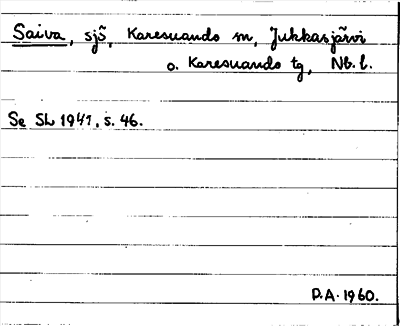 Saiva, sjö, Karesuando sn, Jukkasjärvi
o. Karesuando tg, Nb. l.
Se SL 1941, s. 46.
P.A. 1960.